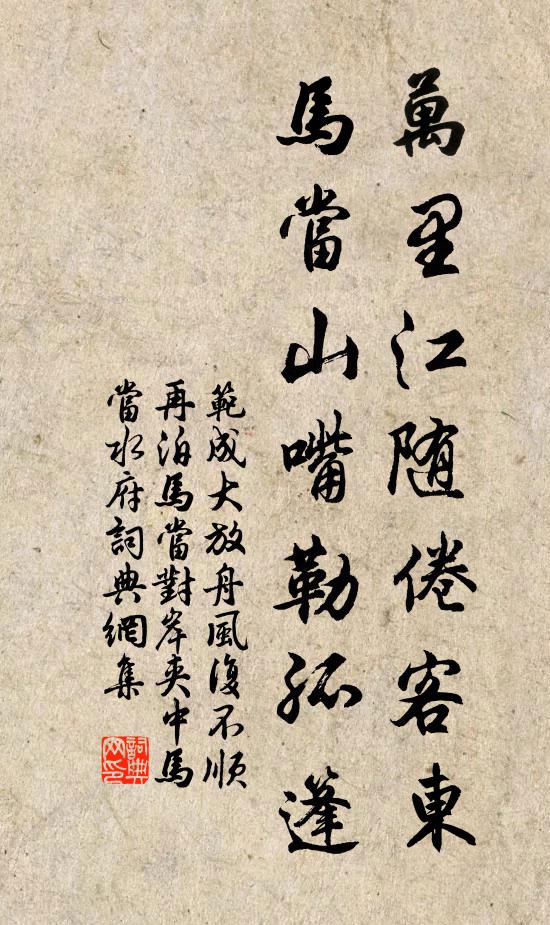 萬里江随倦客東
馬當山嘴勒孤篷
範成大放舟風復不順
再泊馬當對岸夾中馬
當水府詞典網集
詞典
网印